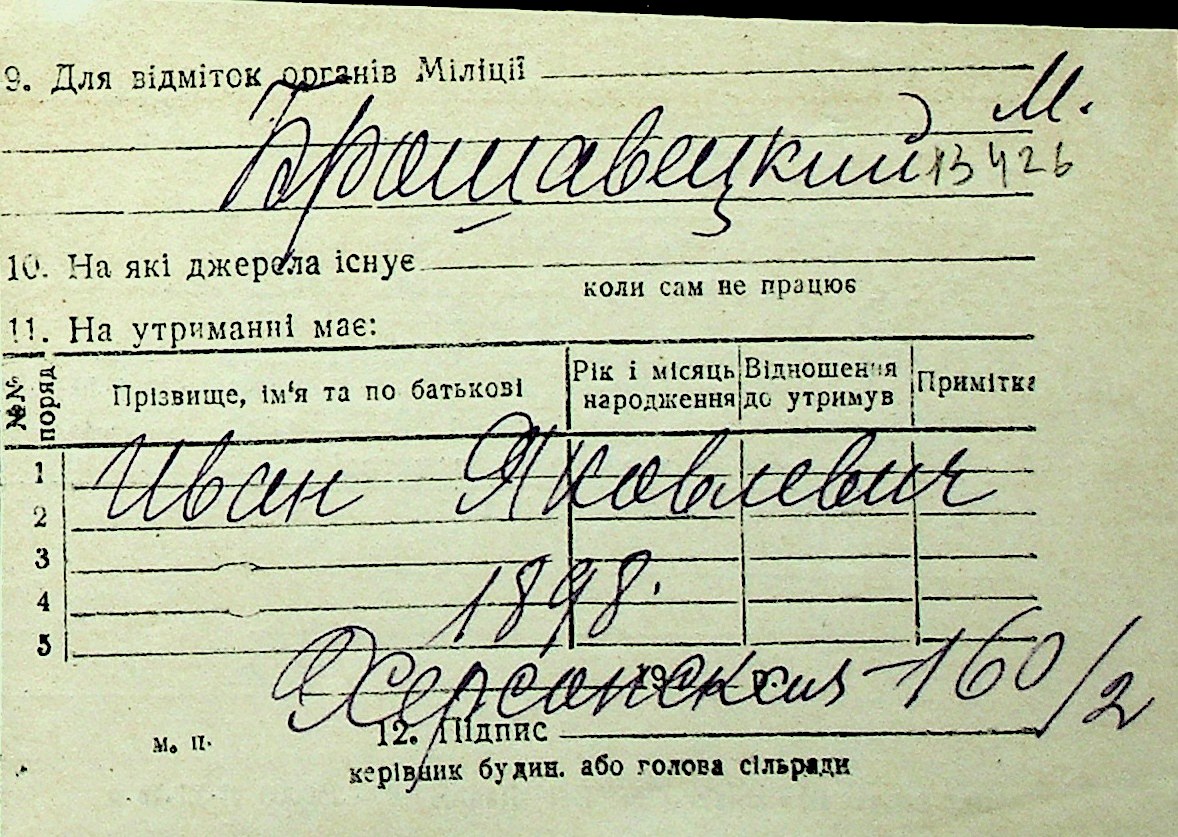 9. Для відміток органів Міліції
М.
Брощавецкий 13426
10. На які джерела існує
коли сам не працює
11. На утриманні має:
№№ поряд
Прізвище, ім‘я та по батькові
Рік і місяць народження
Відношення до утримув
Примітка
1
Иван Яковлевич
2
3
4
1898.
5
Херсонская 160/2
19 р.
м. п.
12. Підпис
керівник будин. або голова сільради